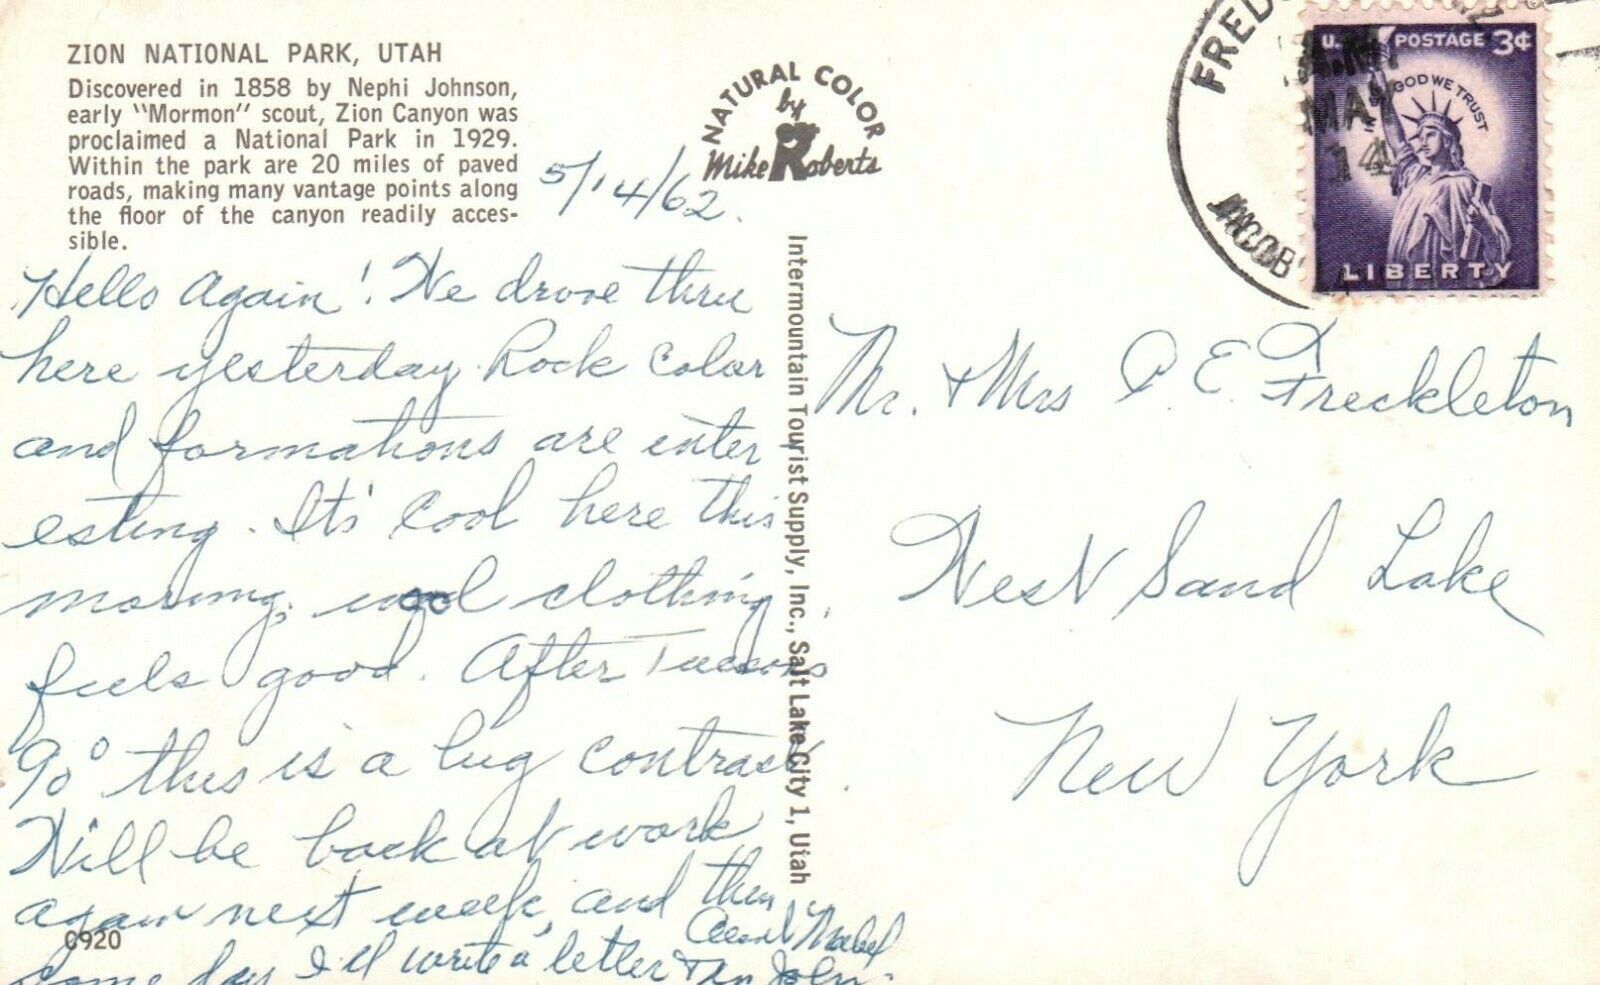 ZION NATIONAL PARK, UTAH
Discovered in 1858 by Nephi Johnson,
early "Mormon" scout, Zion Canyon was
proclaimed a National Park in 1929.
Within the park are 20 miles of paved
roads, making many vantage points along
the floor of the canyon readily acces-
sible.
5/14/62.
Hello Again! We drove thru
here yesterday. Rock color
and formations are inter
esting. It's cool here this
morning, wool clothing
feels good. After Tucsons
90° this is a big contrast.
Will be back at work
again next week, and then
some day I'll write a letter
Aunt Mabel
John
C920
NATURAL COLOR
by
Mike Roberts
Intermountain Tourist Supply, Inc., Salt Lake City 1, Utah
FRED
A.M.
MAY
14
JACOB
U.S. POSTAGE 3¢
IN GOD WE TRUST
LIBERTY
Mr. & Mrs P. E. Freckleton
West Sand Lake
New York